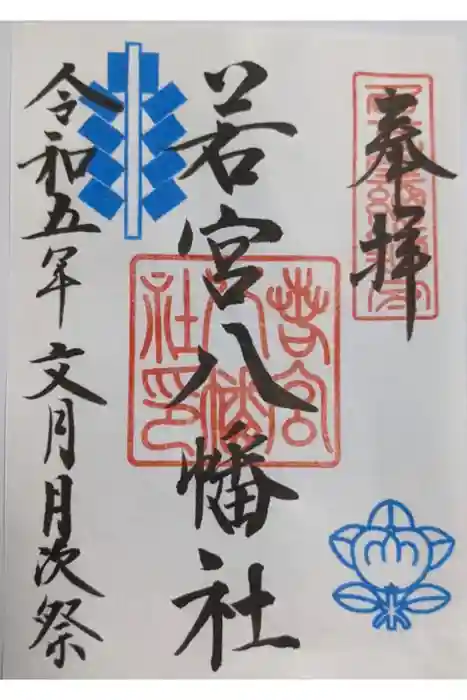 奉拝
若宮八幡社
令和五年 文月月次祭
若宮
八幡
社印